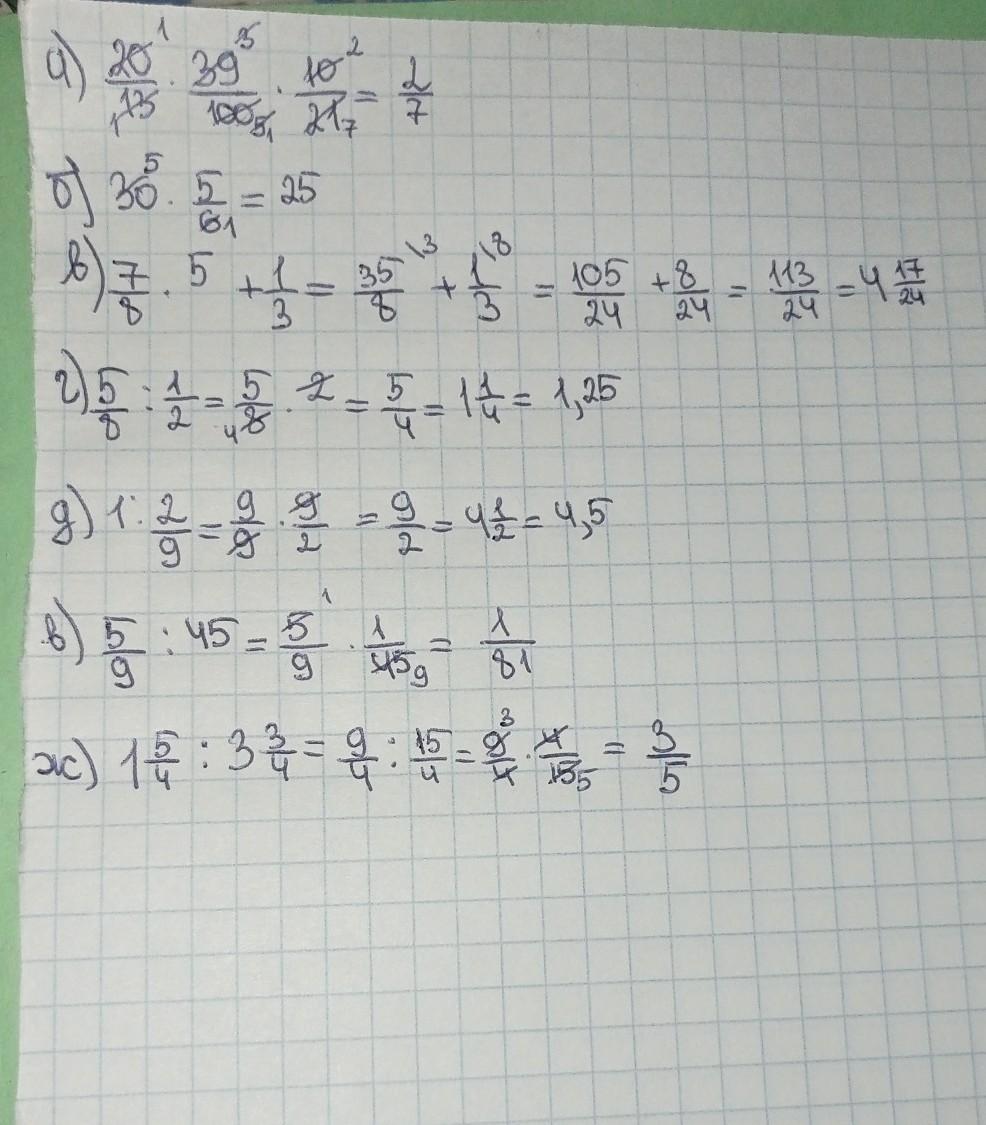 а) 20/13 · 39/100 · 10/21 = 2/7
б) 30 · 5/6 = 25
в) 7/8 · 5 + 1/3 = 35/8 + 1/3 = 105/24 + 8/24 = 113/24 = 4 17/24
г) 5/8 : 1/2 = 5/8 · 2 = 5/4 = 1 1/4 = 1,25
д) 1 : 2/9 = 9/9 · 9/2 = 9/2 = 4 1/2 = 4,5
в) 5/9 : 45 = 5/9 · 1/45 = 1/81
ж) 1 5/4 : 3 3/4 = 9/4 : 15/4 = 9/4 · 4/15 = 3/5